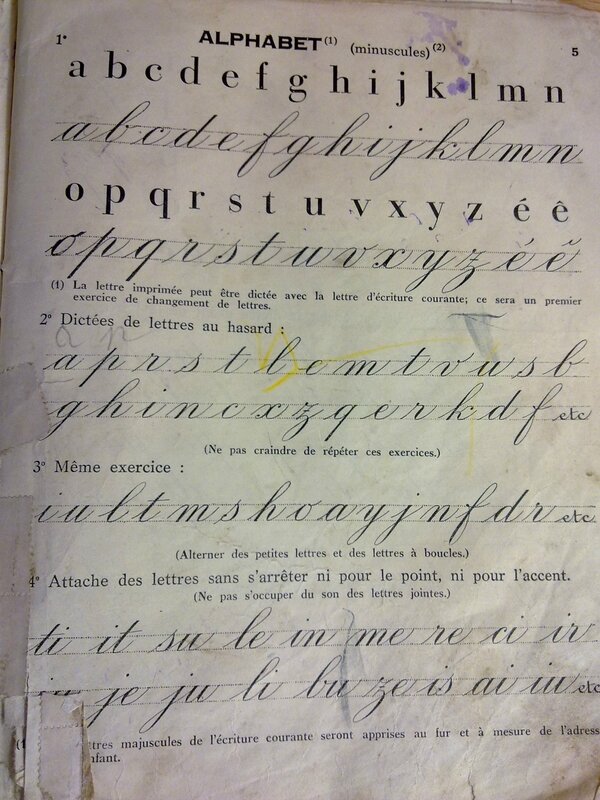 1º ALPHABET (1) (minuscules) (2) 5
a b c d e f g h i j k l m n
a b c d e f g h i j k l m n
o p q r s t u v x y z é ê
o p q r s t u v x y z é ê
(1) La lettre imprimée peut être dictée avec la lettre d'écriture courante; ce sera un premier
exercice de changement de lettres.
2º Dictées de lettres au hasard :
a p r s t l e m t v u s b
g h i n c x z q e r k d f etc
(Ne pas craindre de répéter ces exercices.)
3º Même exercice :
i u b t m s h o a y j n f d r etc
(Alterner des petites lettres et des lettres à boucles.)
4º Attache des lettres sans s'arrêter ni pour le point, ni pour l'accent.
(Ne pas s'occuper du son des lettres jointes.)
ti it su le in me re ci ir
je ju li bu ze is ai iu etc
majuscules de l'écriture courante seront apprises au fur et à mesure de